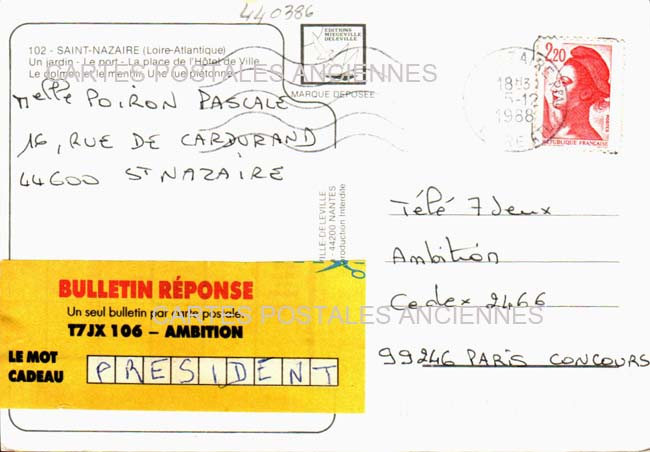 440386
102 - SAINT-NAZAIRE (Loire-Atlantique)
Un jardin - Le port - La place de l'Hôtel de Ville
Le dolmen et le menhir, Une rue piétonne
CARTES POSTALES ANCIENNES
EDITIONS
MIEGEVILLE
DELEVILLE
MARQUE DEPOSEE
18H3
5-12
1988
2,20
POSTES
REPUBLIQUE FRANÇAISE
Melle POIRON PASCALE
16, RUE DE CARDURAND
44600 ST NAZAIRE
VILLE-DELEVILLE
- 44200 NANTES
production Interdite
Télé 7 Jeux
Ambition
Cedex 2466
99246 PARIS CONCOURS
BULLETIN RÉPONSE
Un seul bulletin par carte postale.
CARTES POSTALES ANCIENNES
T7JX 106 – AMBITION
LE MOT
CADEAU
PRESIDENT